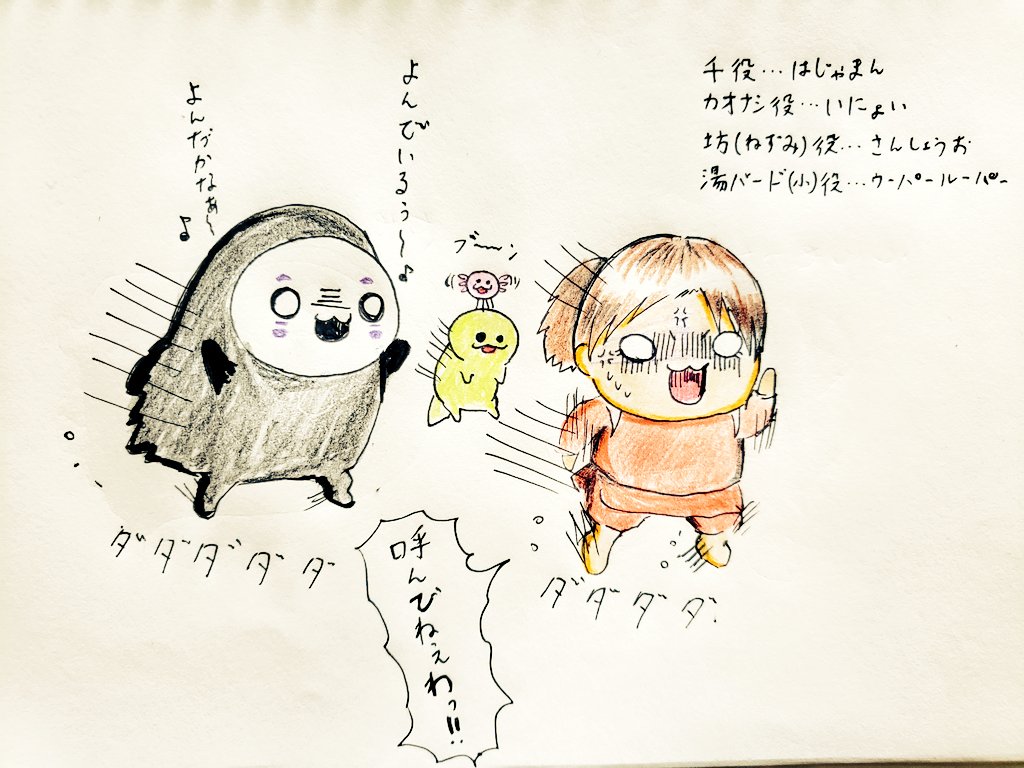 千役…はじゃまん
カオナシ役…いにょい
坊(ねずみ)役…さんしょうお
湯バード(小)役…ウーパールーパー
よんでいるぅ〜♪
よんだかなぁ〜♪
ブーン
ダダダダダ
ダダダダ
呼んびねぇわっ!!